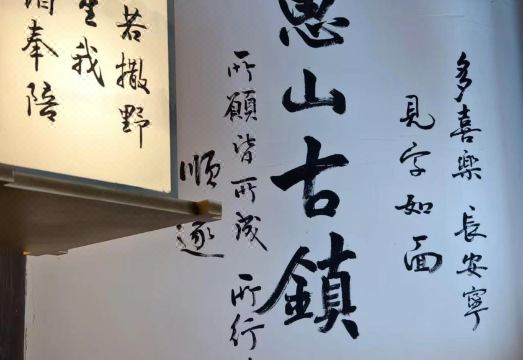 多喜樂 長安寧
見字如面
惠山古鎮
所願皆所成 所行
順遂
若撒野
生我
酒奉陪